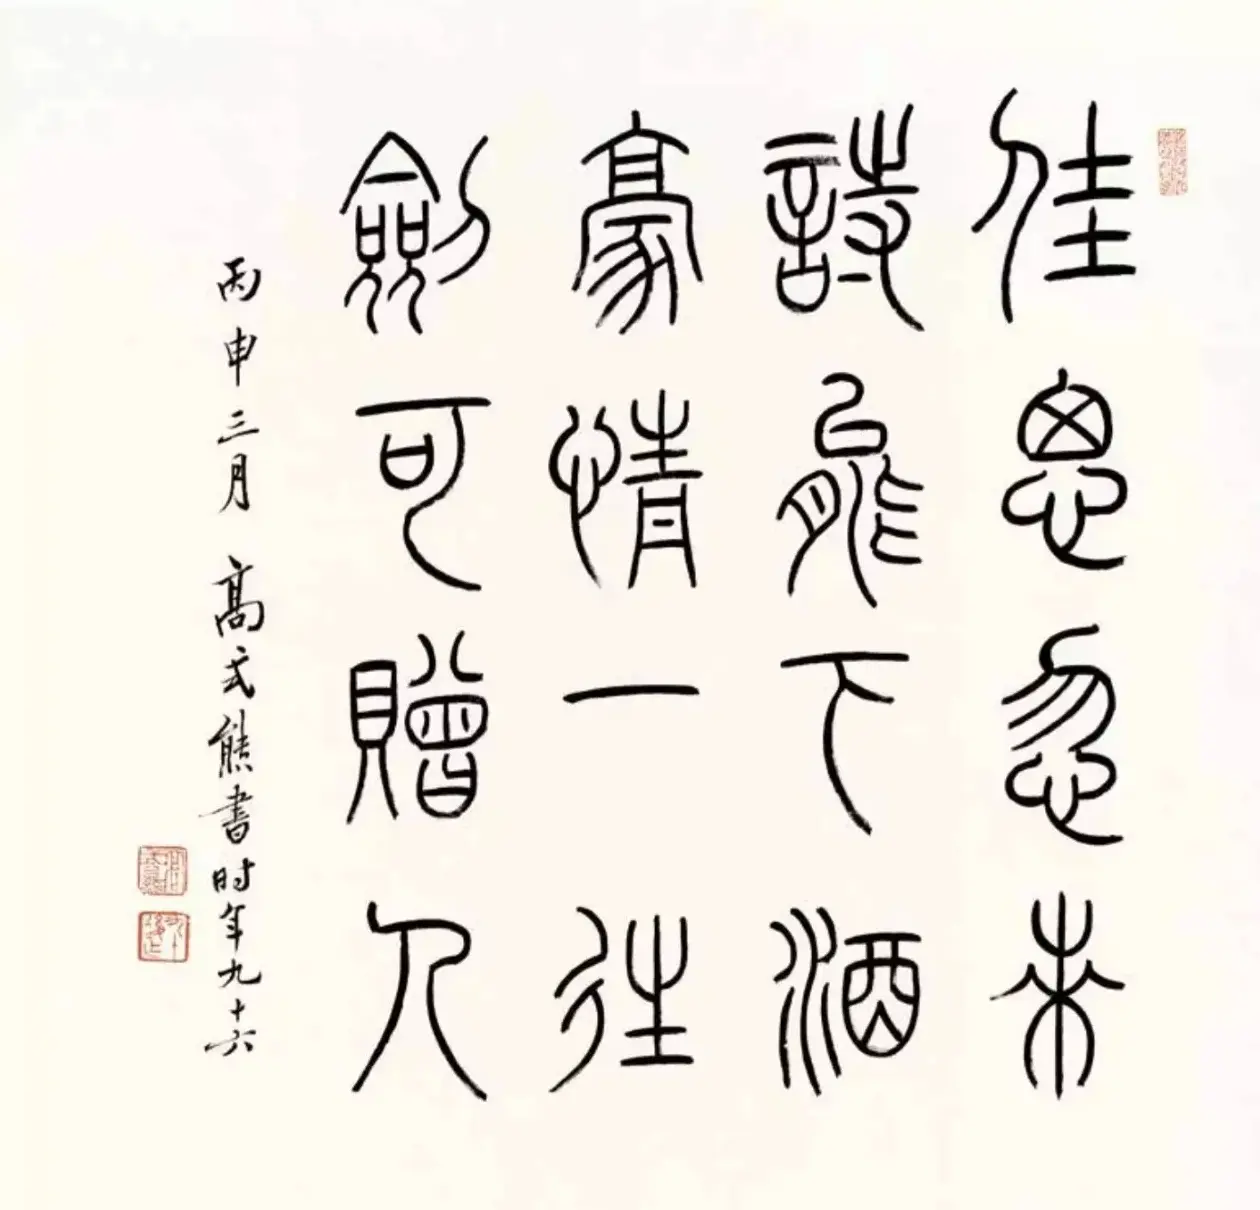 佳思忽来
詩能下酒
豪情一往
劍可贈人
丙申三月 高式熊書时年九十六